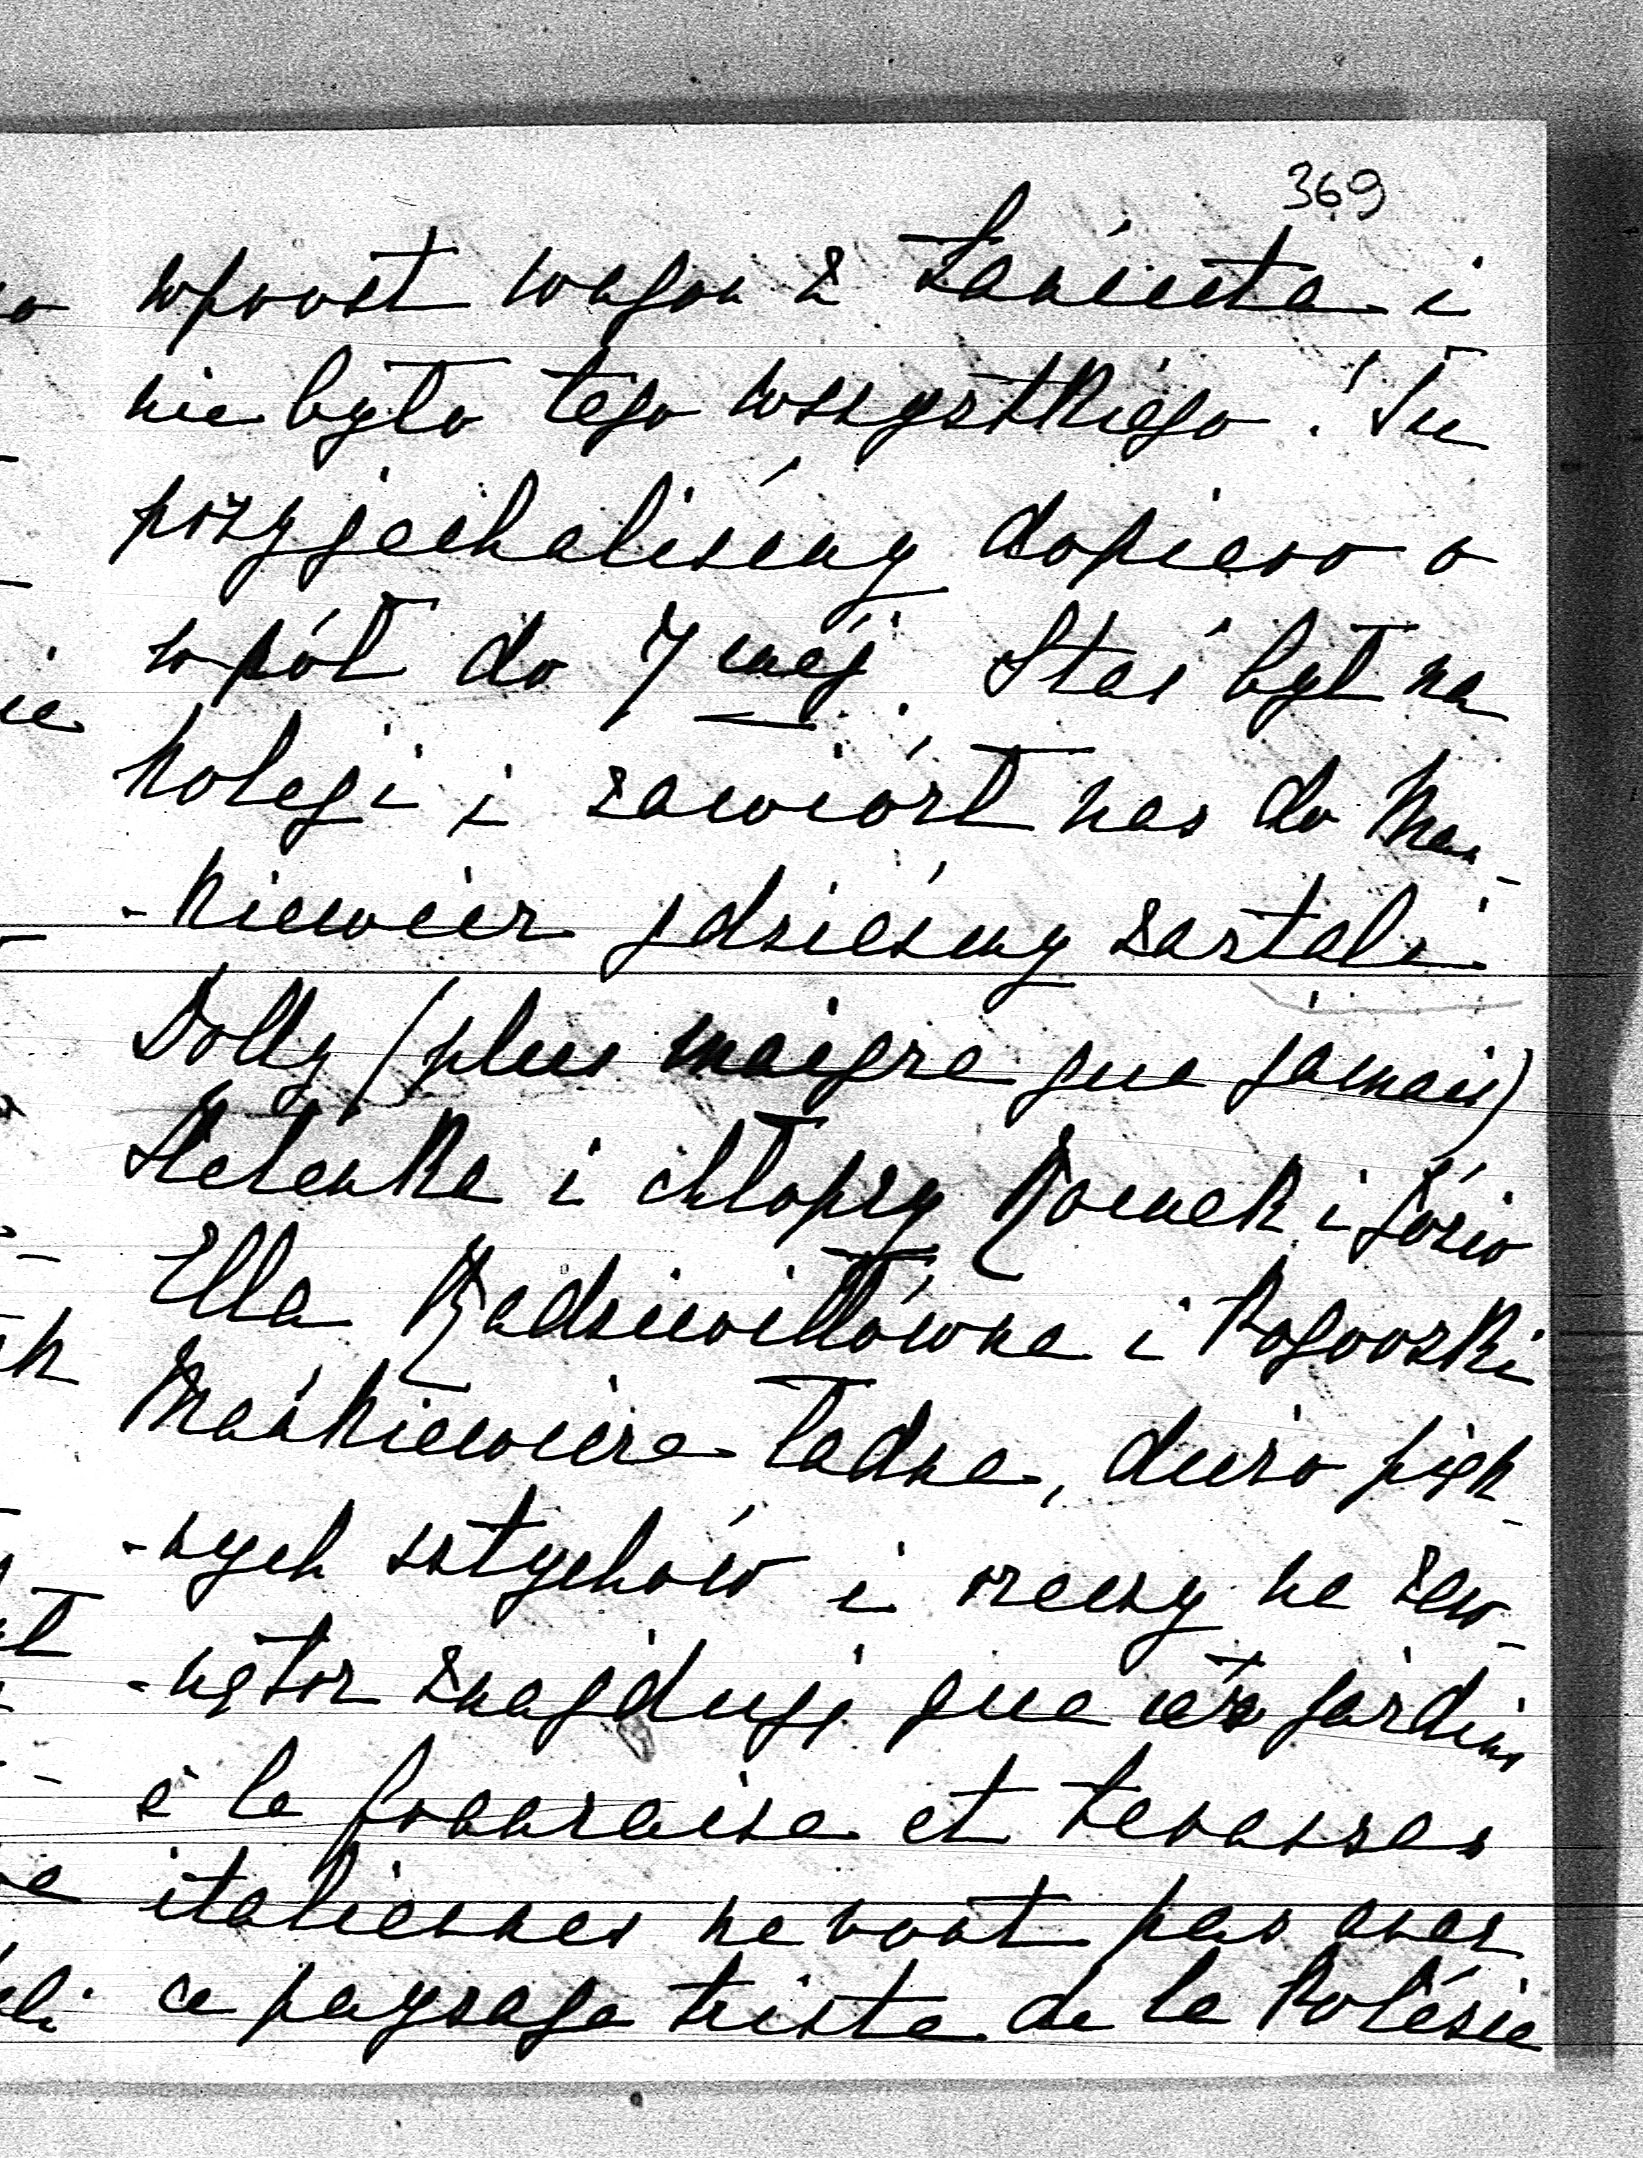 369
wprost wagon z Łańcuta i
nie było tego wszystkiego! Tu
przyjechaliśmy dopiero o
wpół do 7 mej. Staś był na
kolegi i zawiózł nas do Man
-kiewicz gdzieśmy zastali
Dolly (plus maigre que jamais)
Helenka i chłopcy Romek i Józio
Ella Radziwiłłówna i Pogorski
Mańkiewicze ładne, dużo pięk
-nych sztychów i rzeczy na zew-
-nątrz znajduję que les jardins
à la française et terasses
italiennes ne vont pas avec
ce paysage triste de la Polésie